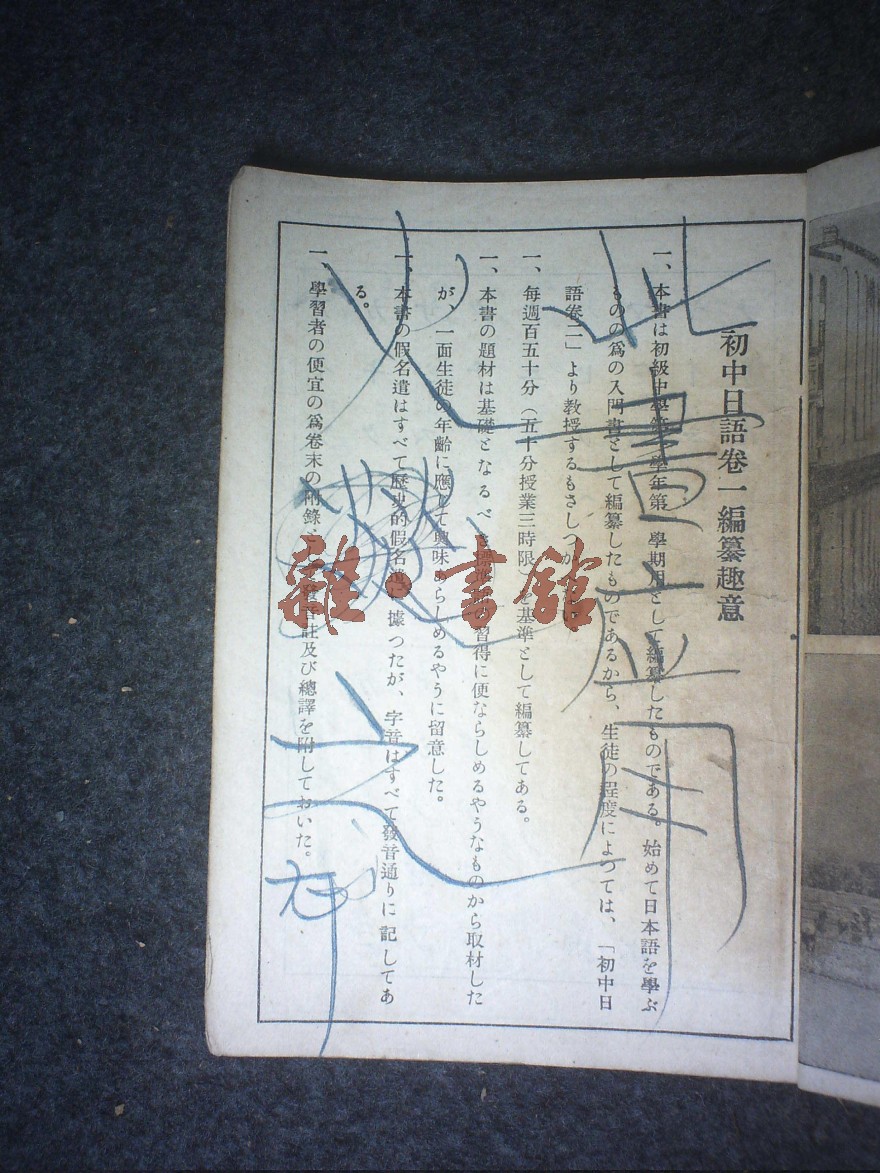 初中日語卷一編纂趣意
一、本書は初級中學第一學年第一學期用として編纂したものである。始めて日本語を學ぶ
ものの爲の入門書として編纂したものであるから、生徒の程度によつては、「初中日
語卷二」より教授するもさしつか
一、每週百五十分（五十分授業三時限）を基準として編纂してある。
一、本書の題材は基礎となるべき 習得に便ならしめるやうなものから取材した
が、一面生徒の年齡に應じて興味あらしめるやうに留意した。
一、本書の假名遣はすべて歷史的假名遣に據つたが、字音はすべて發音通りに記してあ
る。
一、學習者の便宜の爲卷末の附錄 註及び總譯を附しておいた。
此書无用
火
雜·書館